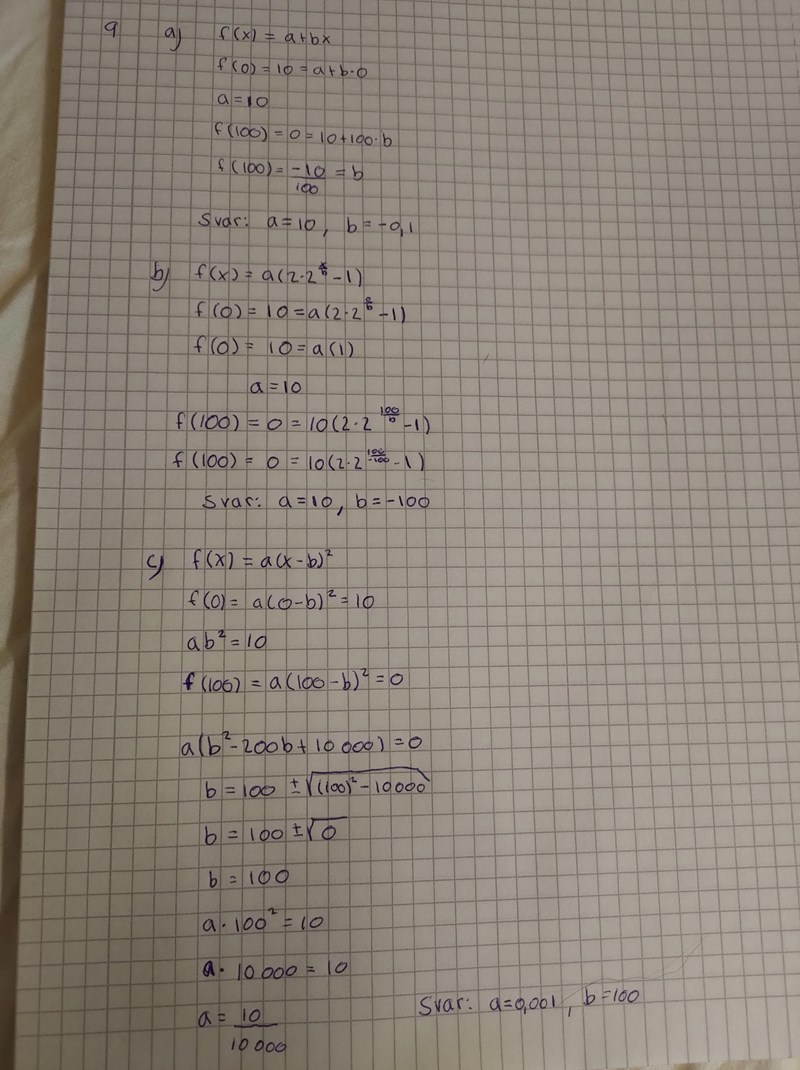 9 a) f(x) = a+bx
f(0) = 10 = a+b·0
a = 10
f(100) = 0 = 10+100·b
f(100) = -10/100 = b
Svar: a = 10, b = -0,1
b) f(x) = a(2·2^(x/b) - 1)
f(0) = 10 = a(2·2^(0/b) - 1)
f(0) = 10 = a(1)
a = 10
f(100) = 0 = 10(2·2^(100/b) - 1)
f(100) = 0 = 10(2·2^(100/-100) - 1)
Svar: a = 10, b = -100
c) f(x) = a(x-b)²
f(0) = a(0-b)² = 10
ab² = 10
f(100) = a(100-b)² = 0
a(b²-200b+10 000) = 0
b = 100 ± √((100)² - 10000)
b = 100 ± √0
b = 100
a · 100² = 10
a · 10 000 = 10
a = 10/10 000
Svar: a = 0,001, b = 100